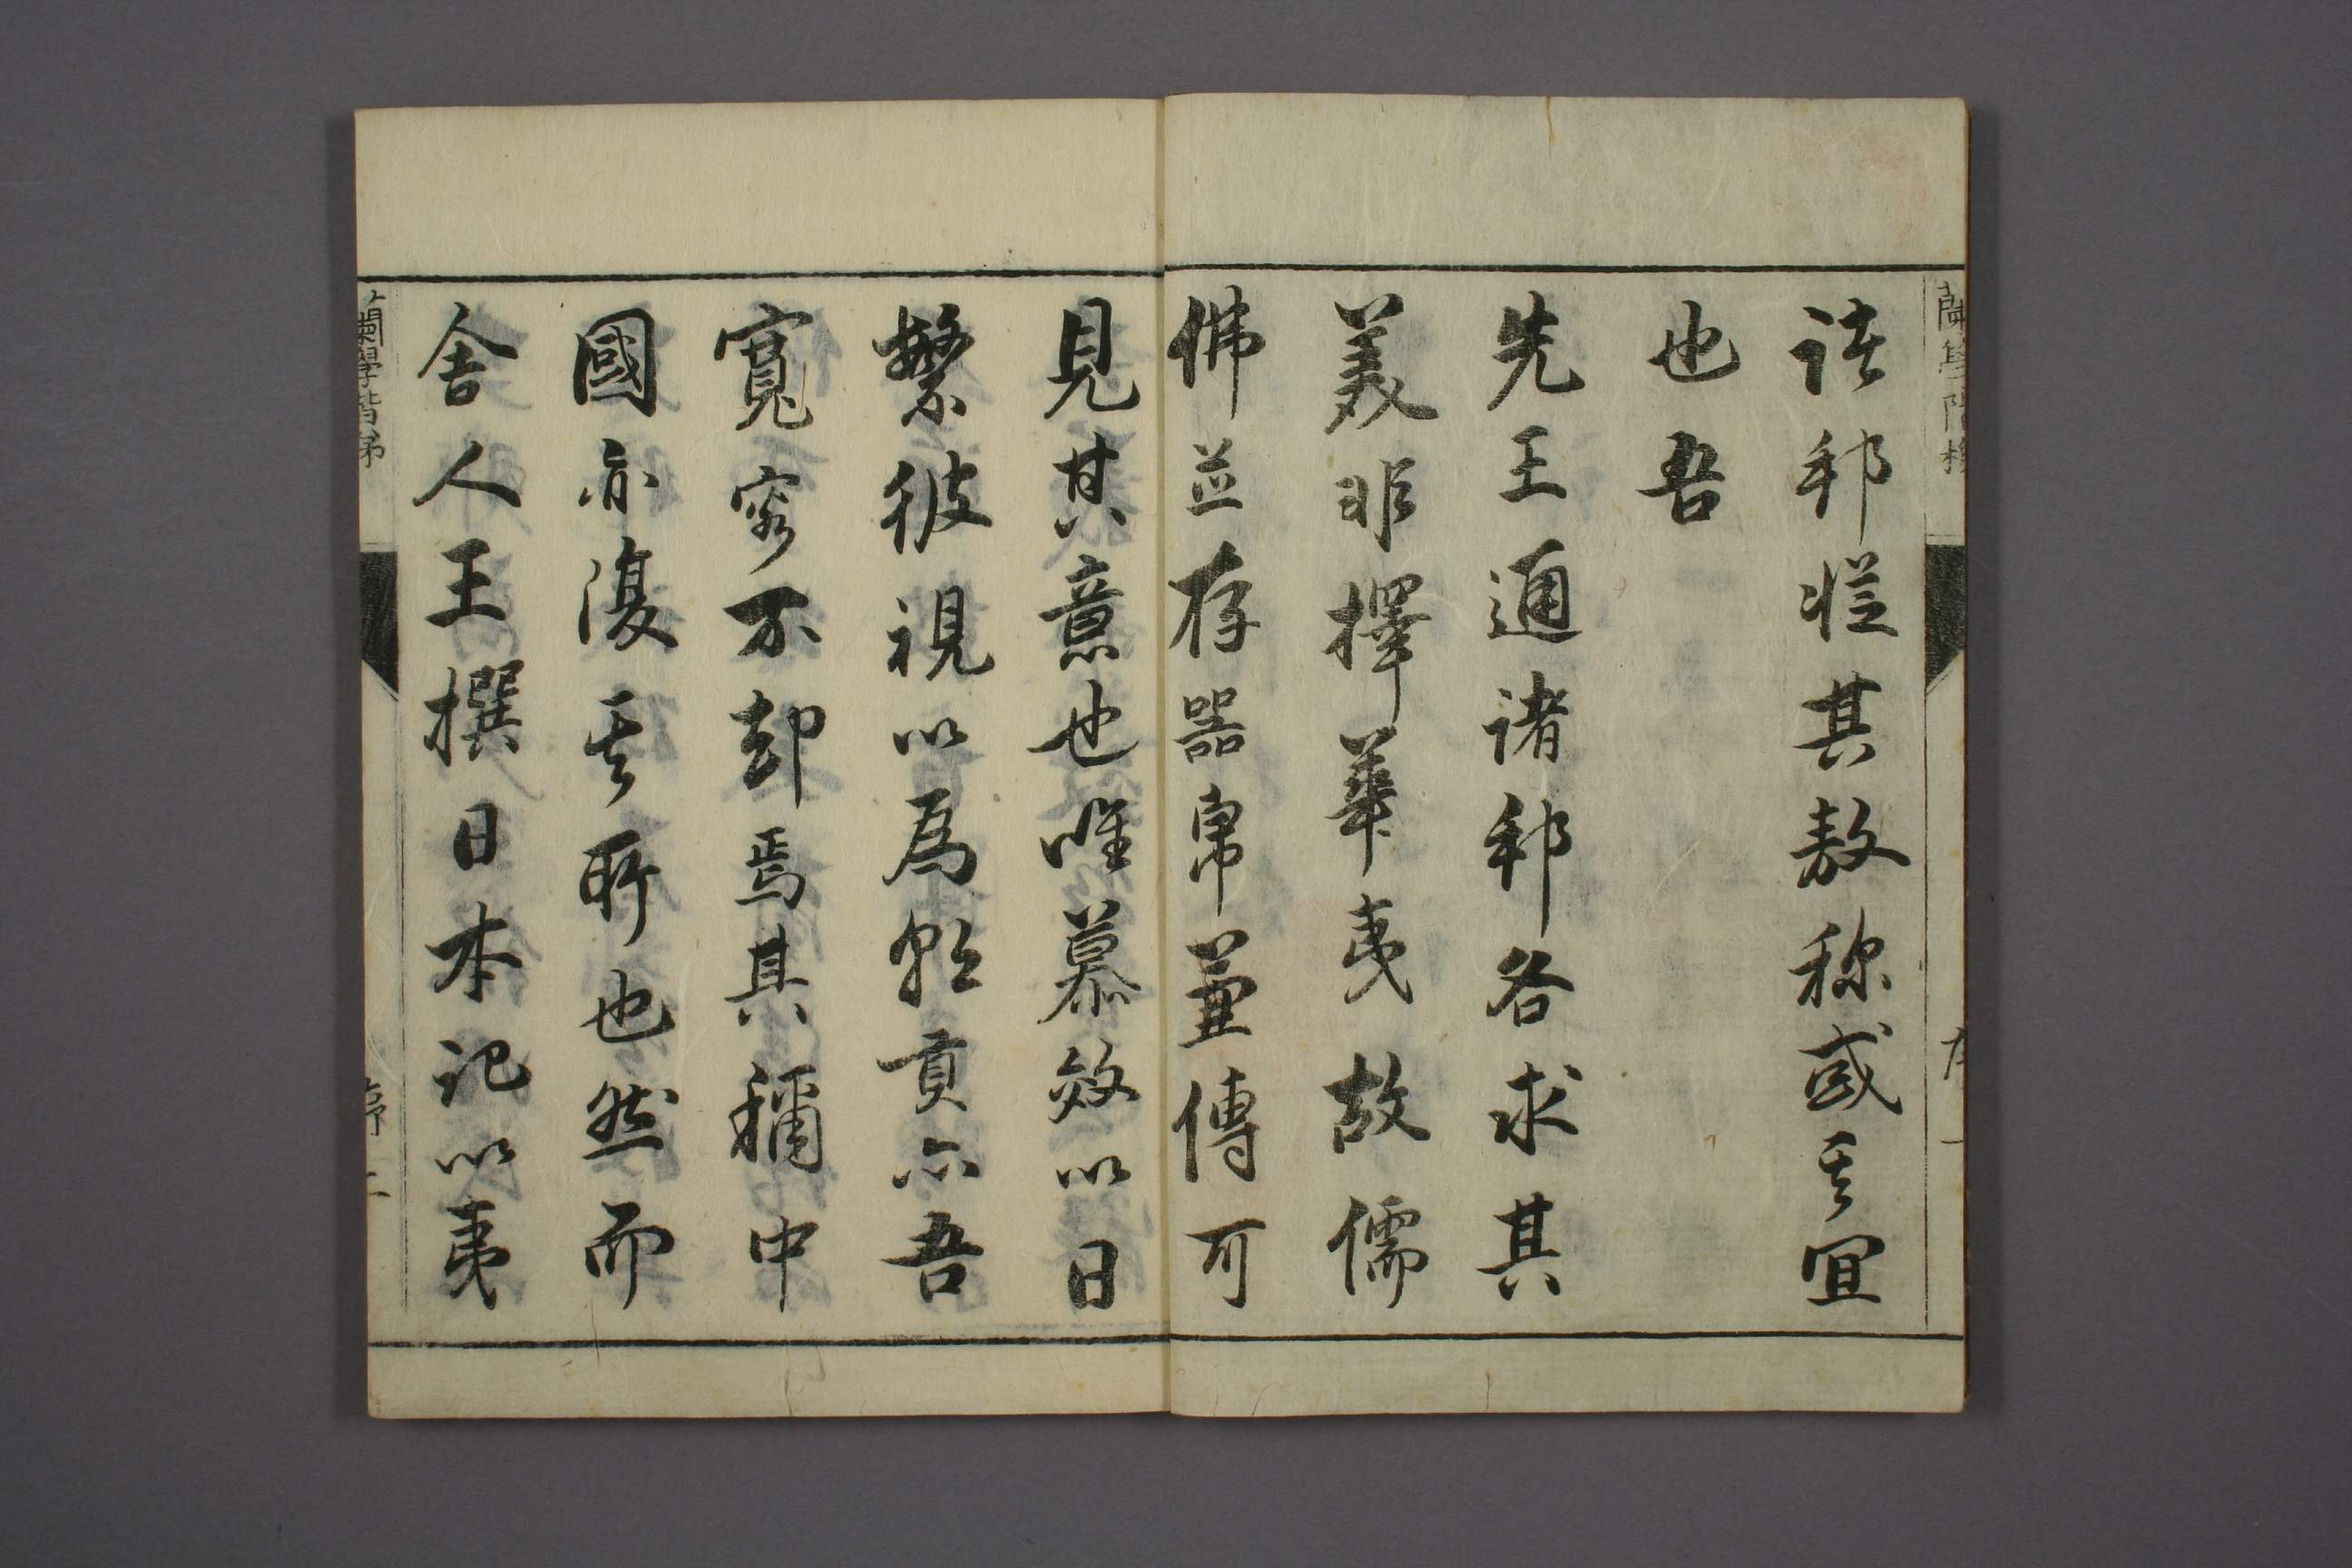 蘭學階梯
序一
邦從其敖称或其宜
也吾
先王通諸邦各求其
美非擇華夷故儒
佛並存器帛兼傳可
見其意也唯慕效以日
繁彼視以為朝貢亦吾
寬容不却焉其稱中
國亦復其所也然而
舎人王撰日本記以夷
蘭學階梯
序二